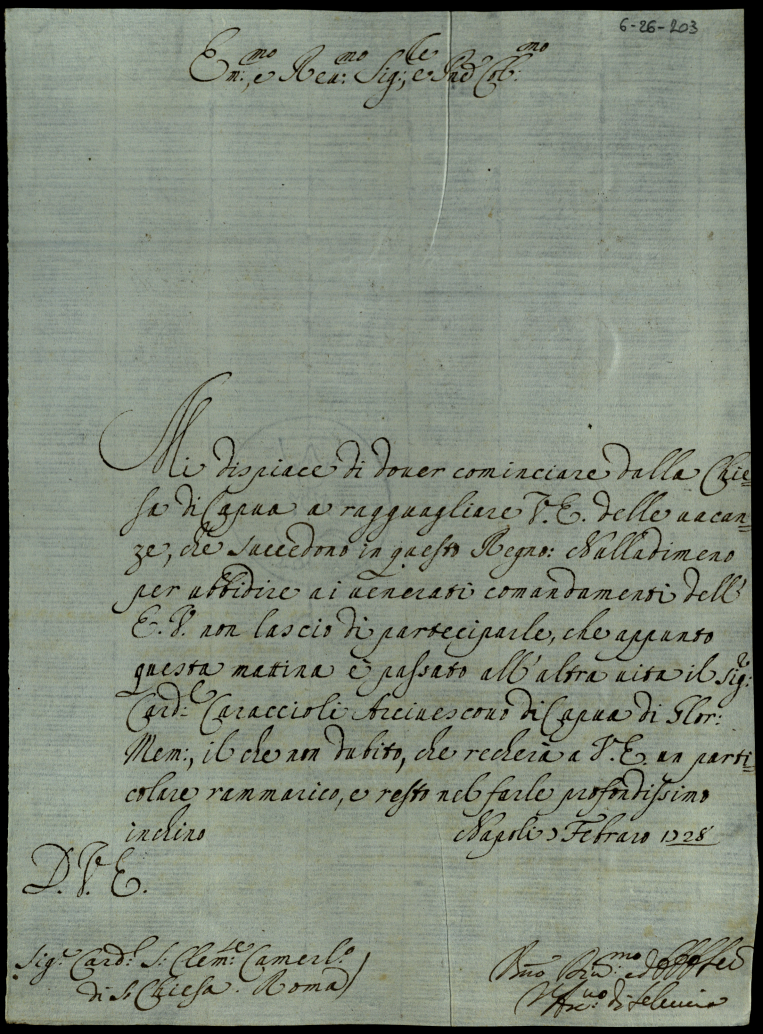 6-26-203
Em:mo, e Reu:mo Sig:re, e Pad Col:mo
Mi dispiace di douer cominciare dalla Chie=
sa di Capua a ragguagliare V. E. delle uacan=
ze, che succedono in questo Regno: Nulladimeno
per ubbidire ai uenerati comandamenti dell'
E. V. non lascio di parteciparle, che appunto
questa mattina è passato all'altra uita il Sig:r
Card:l Caraccioli Arciuescouo di Capua di Glor:
Mem:, il che non dubito, che recherà a V. E. un parti=
colare rammarico, e resto nel farle profondissimo
inchino Napoli Febraro 1728
D. V. E.
Sig.r Card:l S: Clem:te Camerl.o
di S: Chiesa. Roma
Arc:uo di Seleucia